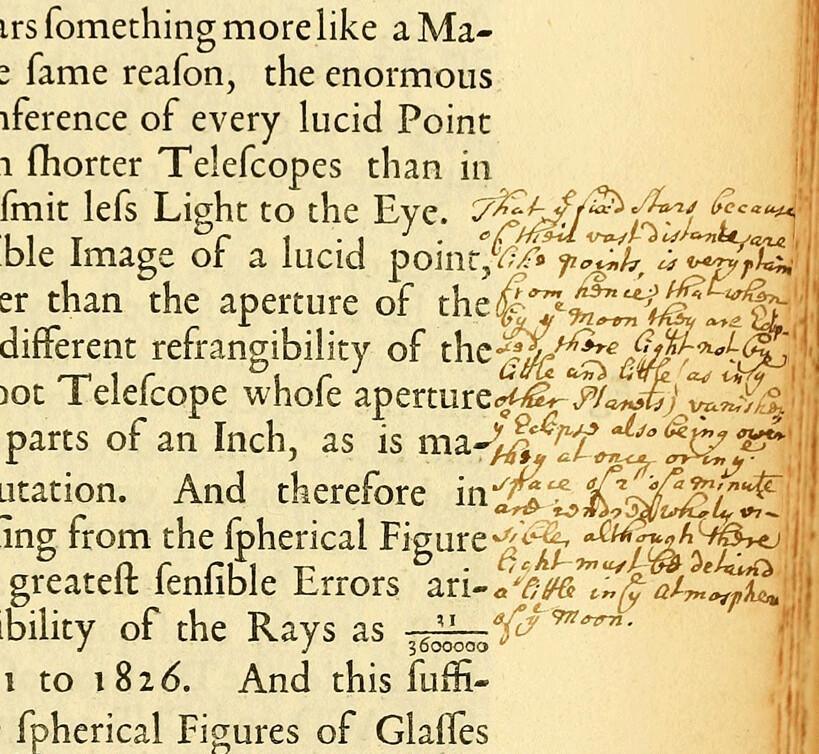 ars ſomething more like a Ma-
e ſame reaſon, the enormous
nference of every lucid Point
n ſhorter Teleſcopes than in
ſmit leſs Light to the Eye.
ible Image of a lucid point,
er than the aperture of the
different refrangibility of the
oot Teleſcope whoſe aperture
parts of an Inch, as is ma-
utation. And therefore in
ſing from the ſpherical Figure
greateſt ſenſible Errors ari-
ibility of the Rays as 31/3600000
1 to 1826. And this ſuffi-
ſpherical Figures of Glaſſes
That yͤ fixed Stars because
of their vast distance, are
like points, is very plain
from hence; that when
by yͤ Moon they are
there light not by
little and little (as in yͤ
other Planets)
yͤ Eclipse also being over
they at once, or in yͤ
space of 2'' of a minute
are wholy vi-
sible, although there
light must be detaind
a little in yͤ atmosphere
of yͤ Moon.